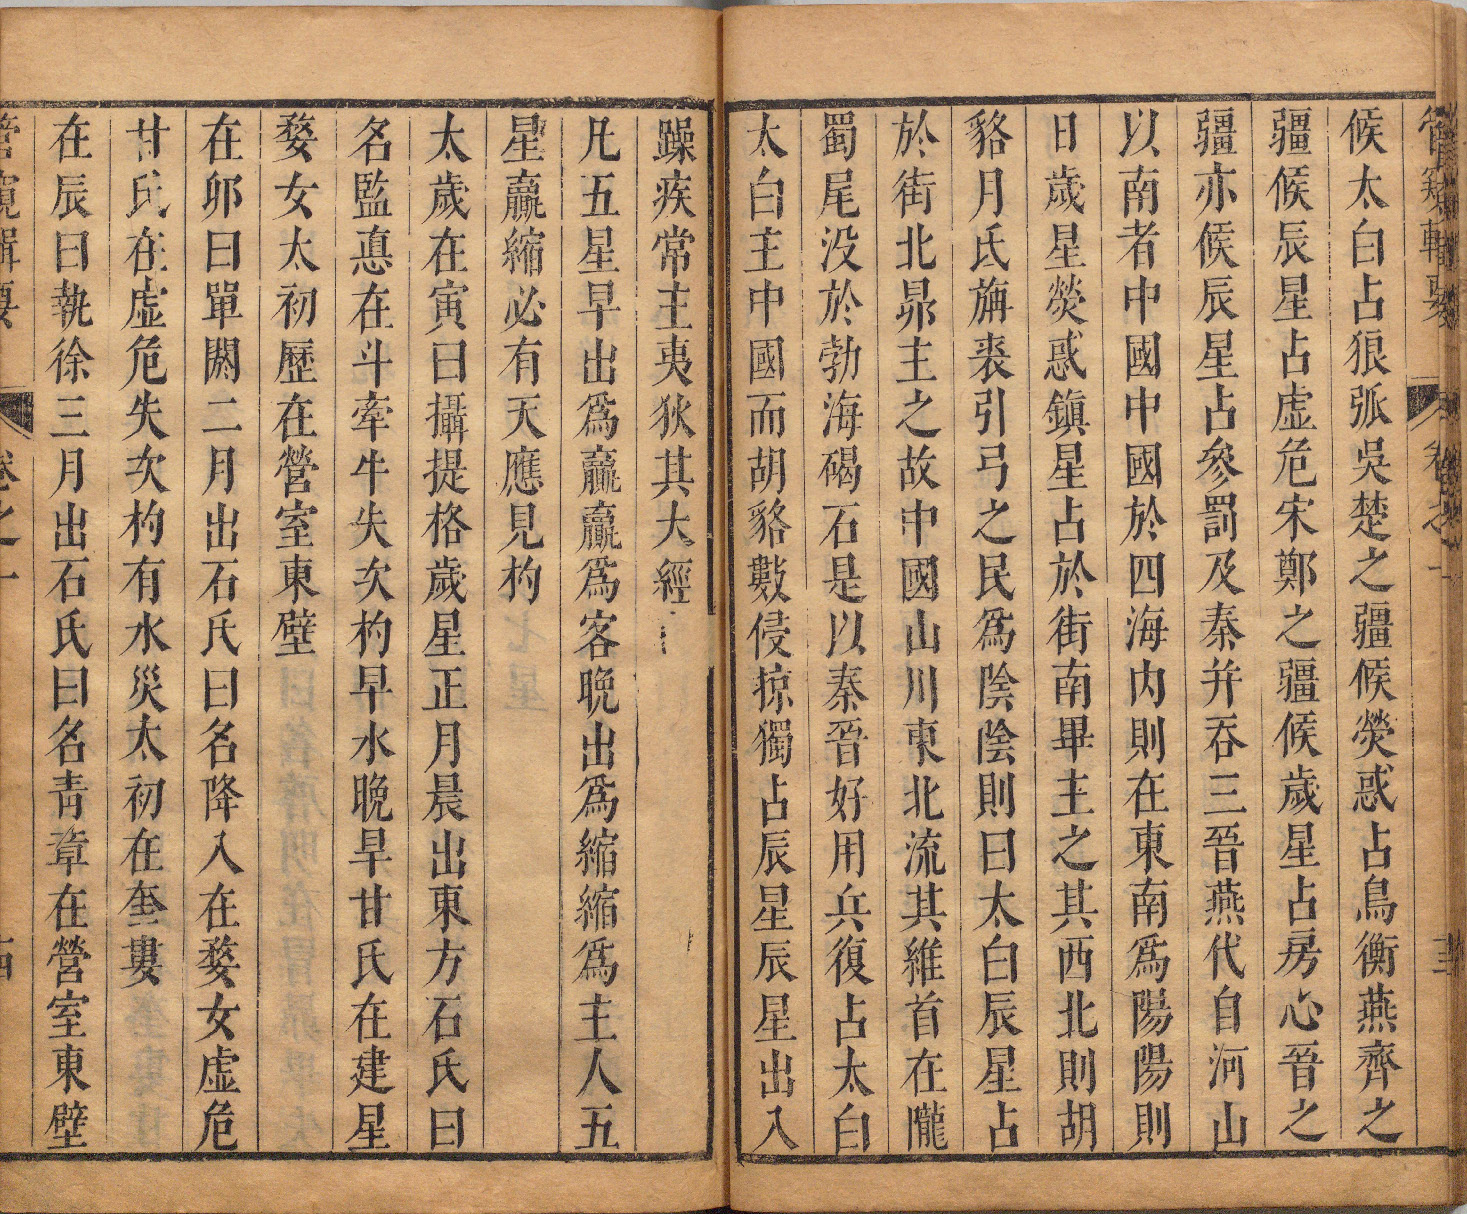 管窺輯要 卷之一 三
候太白占狼弧吳楚之疆候熒惑占鳥衡燕齊之
疆候辰星占虛危宋鄭之疆候歲星占房心晉之
疆亦候辰星占參罰及秦并吞三晉燕代自河山
以南者中國中國於四海內則在東南為陽陽則
日歲星熒惑鎮星占於街南畢主之其西北則胡
貉月氏旃裘引弓之民為陰陰則曰太白辰星占
於街北昴主之故中國山川東北流其維首在隴
蜀尾没於勃海碣石是以秦晉好用兵復占太白
太白主中國而胡貉數侵掠獨占辰星辰星出入
躁疾常主夷狄其大經
凡五星早出為贏贏為客晚出為縮縮為主人五
星贏縮必有天應見杓
太歲在寅曰攝提格歲星正月晨出東方石氏曰
名監悳在斗牽牛失次杓早水晚旱甘氏在建星
婺女太初歷在營室東壁
在卯曰單閼二月出石氏曰名降入在婺女虛危
甘氏在虛危失次杓有水災太初在奎婁
在辰曰執徐三月出石氏曰名青章在營室東壁
管窺輯要 卷之一